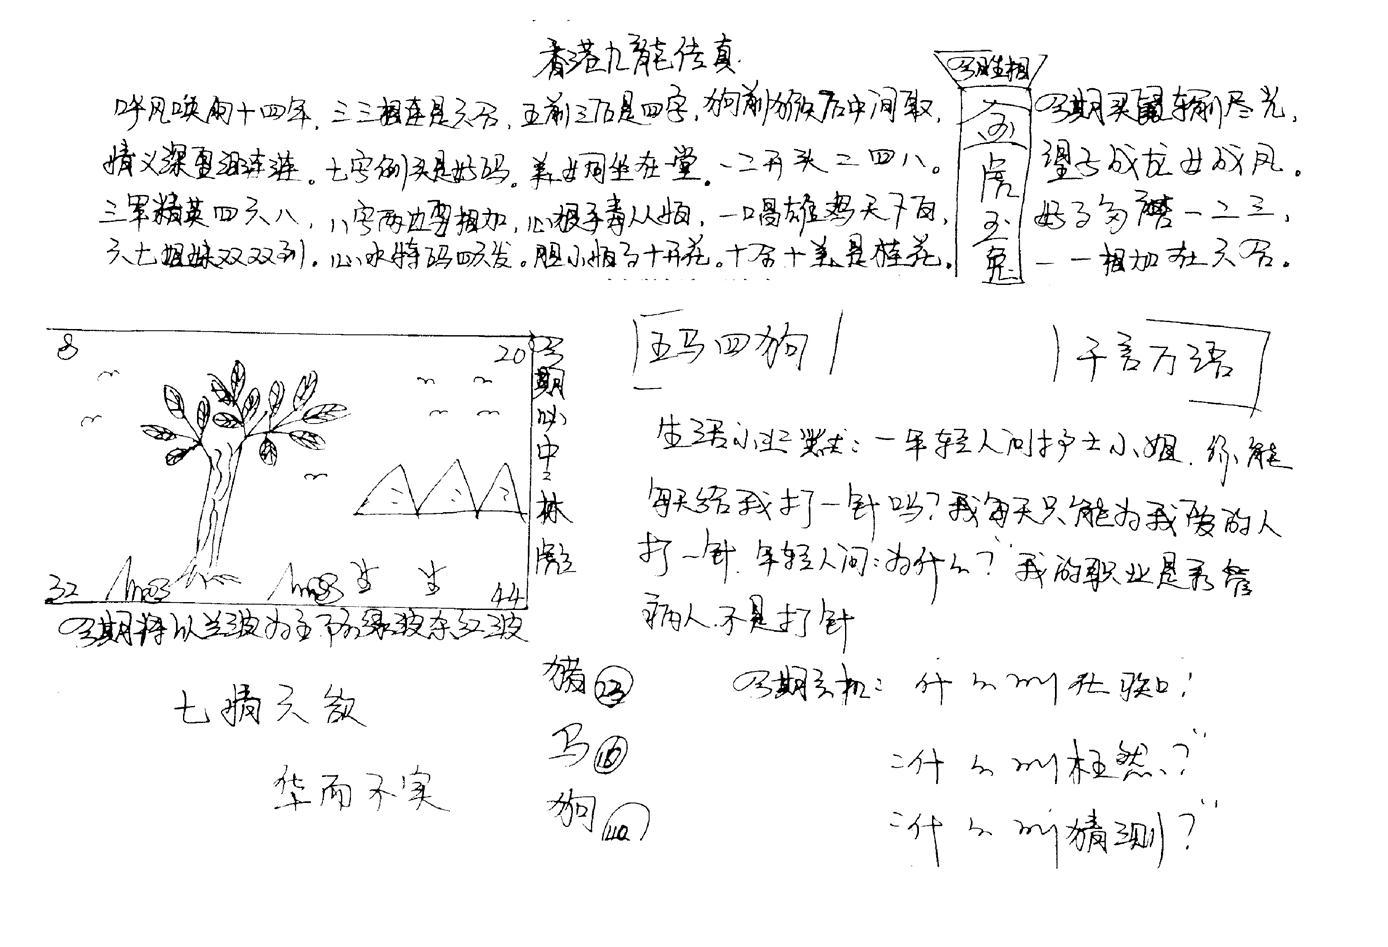 香港九龙传真
呼风唤雨十四年，三三相连是六合，五前三后是四字，狗前猴后中间取，
情义深重泪连连。七字倒头是好码。美女同坐在堂。一二开头二四八。
三军精英四六八，八字两边要相加，心狠手毒人人怕，一唱雄鸡天下白，
六七姐妹双双到。心水特码四六发。胆小怕了十开花。十合十美是桂花。
今期生相
金
虎
玉
兔
今期买尽光，
望子成龙女成凤。
好了多一二三，
一一相加在六合。
8
20
32
44
今期必中三林
今期将以兰波为主防绿波杀红波
五马四狗
千言万语
生活小幽默：一年轻人问护士小姐．你能
每天给我打一针吗？我每天只能为我爱的人
打一针．年轻人问：为什么？我的职业是看管
病人．不是打针
七情六欲
华而不实
猪 23
马 16
狗 40
今期玄机：什么叫
：什么叫枉然？
：什么叫猜测？